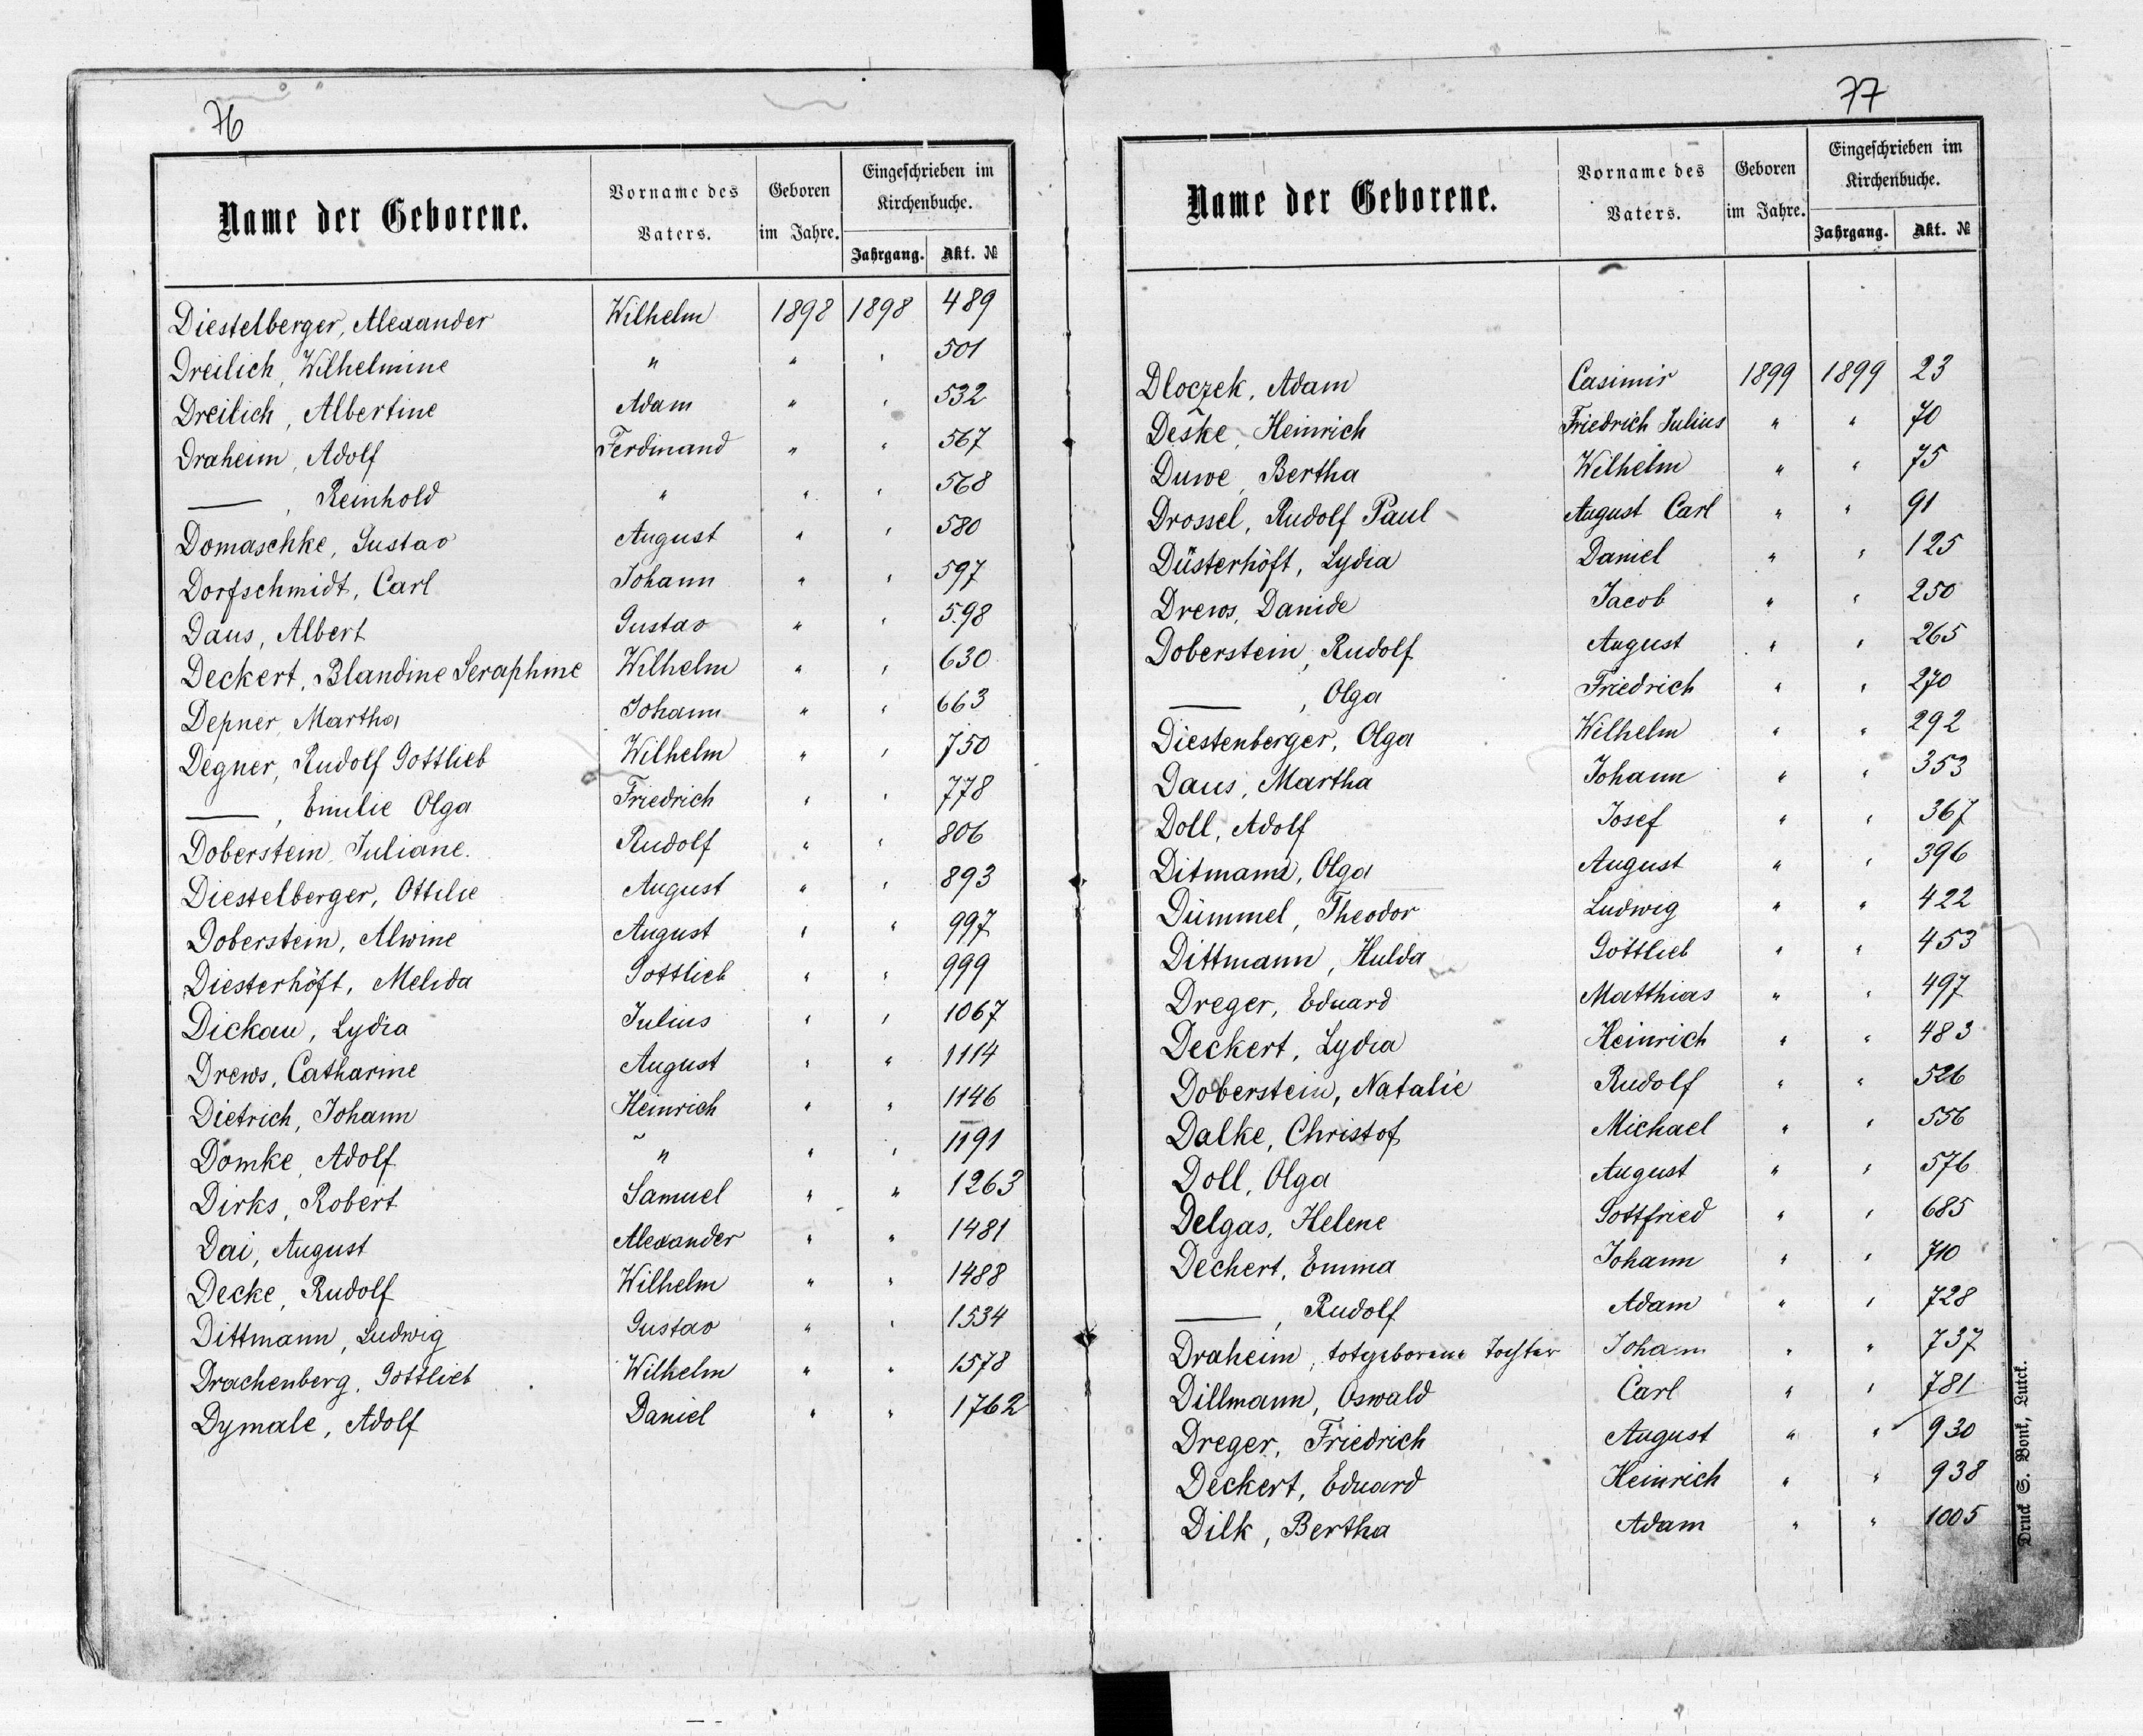 76
Name der Geborene. Vorname des Vaters. Geboren im Jahre. Eingeschrieben im Kirchenbuche. Jahrgang. Akt. №
Diestelberger, Alexander Wilhelm 1898 1898 489
Dreilich, Wilhelmine " " " 501
Dreilich, Albertine Adam " " 532
Draheim, Adolf Ferdinand " " 567
——, Reinhold " " " 568
Domaschke, Gustav August " " 580
Dorfschmidt, Carl Johann " " 597
Daus, Albert Gustav " " 598
Deckert, Blandine Seraphine Wilhelm " " 630
Depner, Martha Johann " " 663
Degner, Rudolf Gottlieb Wilhelm " " 750
——, Emilie Olga Friedrich " " 778
Doberstein, Juliane. Rudolf " " 806
Diestelberger, Ottilie August " " 893
Doberstein, Alwine August " " 997
Diesterhöft, Melida Gottlieb " " 999
Dickau, Lydia Julius " " 1067
Drews, Catharine August " " 1114
Dietrich, Johann Heinrich " " 1146
Domke, Adolf " " " 1191
Dirks, Robert Samuel " " 1263
Dai, August Alexander " " 1481
Decke, Rudolf Wilhelm " " 1488
Dittmann, Ludwig Gustav " " 1534
Drachenberg, Gottlieb Wilhelm " " 1578
Dymale, Adolf Daniel " " 1762
77
Name der Geborene. Vorname des Vaters. Geboren im Jahre. Eingeschrieben im Kirchenbuche. Jahrgang. Akt. №
Dloczek, Adam Casimir 1899 1899 23
Deske, Heinrich Friedrich Julius " " 70
Duwe, Bertha Wilhelm " " 75
Drossel, Rudolf Paul August Carl " " 91
Düsterhöft, Lydia Daniel " " 125
Drews, Danide Jacob " " 250
Doberstein, Rudolf August " " 265
——, Olga Friedrich " " 270
Diestenberger, Olga Wilhelm " " 292
Daus, Martha Johann " " 353
Doll, Adolf Josef " " 367
Ditmann, Olga August " " 396
Dümmel, Theodor Ludwig " " 422
Dittmann, Hulda Gottlieb " " 453
Dreger, Eduard Matthias " " 497
Deckert, Lydia Heinrich " " 483
Doberstein, Natalie Rudolf " " 526
Dalke, Christof Michael " " 556
Doll, Olga August " " 576
Delgas, Helene Gottfried " " 685
Dechert, Emma Johann " " 710
——, Rudolf Adam " " 728
Draheim, totgeborene Tochter Johann " " 737
Dillmann, Oswald Carl " " 781
Dreger, Friedrich August " " 930
Deckert, Eduard Heinrich " " 938
Dilk, Bertha Adam " " 1005
Druck S. Bonk, Lutck.